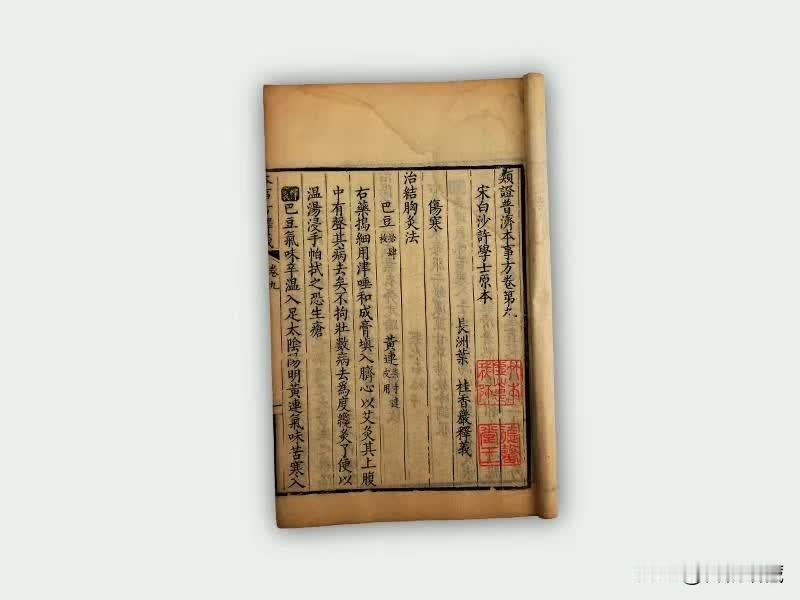 類證普濟本事方卷第九
宋白沙許學士原本
長洲葉 桂香巖釋義
傷寒
治結胸灸法
巴豆拾肆枚 黃連柒寸連皮用
右藥搗細用津唾和成膏填入臍心以艾灸其上腹
中有聲其病去矣不拘壯數病去為度纔灸了便以
溫湯浸手帕拭之恐生瘡
巴豆氣味辛溫入足太陰陽明黃連氣味苦寒入
卷九